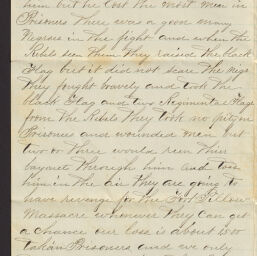 him but he lost the most men in
Prisoners there was a good many
Negroes in the fight and when the
Rebels seen them they raised the black
Flag but it did not scare the Nigs
They fought bravely and took the
black Flag and two Regimental Flags
from the Rebels they took no
Prisoners and wounded men but
two or three would run their
bayonet through him and toss
him in the air they are going to
have revenge for the Fort Pillow
Massacre whenever they can get
a chance our loss is about 1500
taken Prisoners and we only